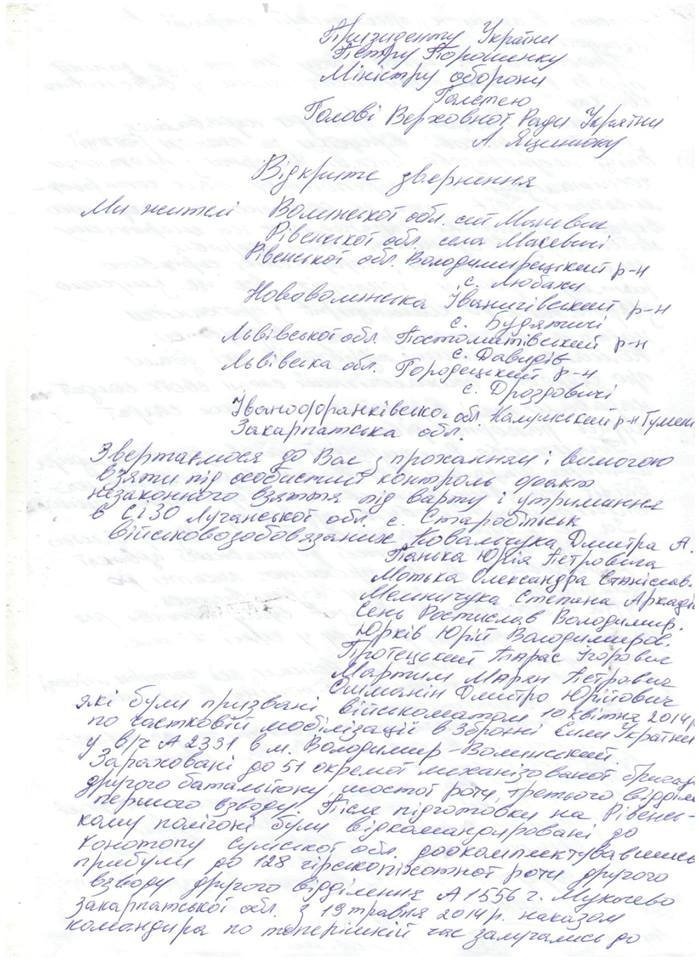 Призиденту України
Петру Порошенку
Міністру оборони
Голові Верховної Ради України
Відкрите звернення
Ми жителі Волинської обл. смт
Рівенської обл. села
Рівенскої обл. Володимирецький р-н
с. Любахи
Нововолинська Іваничівський р-н
с. Будятичі
Львівської обл. р-н
с. Давидів
Львівска обл. Городецький р-н
с. Дроздовичі
обл. Калушський р-н
Закарпатська обл.
Звертаємося до Вас з проханням і вимогою
взяти під особистий контроль факт
незаконного взяття під варту і утримання
в СІЗО Луганської обл. с. Старобільськ
Ковальчука Дмитра А.
Панька Юрія Петровича
Мотька Олександра
Степана
Сень Ростислав Володимир.
Юрків Юрій Володимиров.
Тарас Ігорович
Мартин Марян Петрович
Дмитро Юрійович
які були призвані військоматом 10 квітна 2014
по частковій мобілізації в Збройні Сили України
у в/ч А 2331 в м. Володимир-Волинський.
Зараховані до 51 окремої механізованої
другого батальйону, шостої роти, третього
першого взводу. Після підготовки на Рівенсь-
кому полігоні були відкомандировані до
Конотопу Сумської обл. доокомплектувавшись
прибули до 128 роти другого
взводу другого відділення А 1556 г. Мукачево
закарпатської обл. З 19 травня 2014 р. наказом
командира по теперішній час залучались до